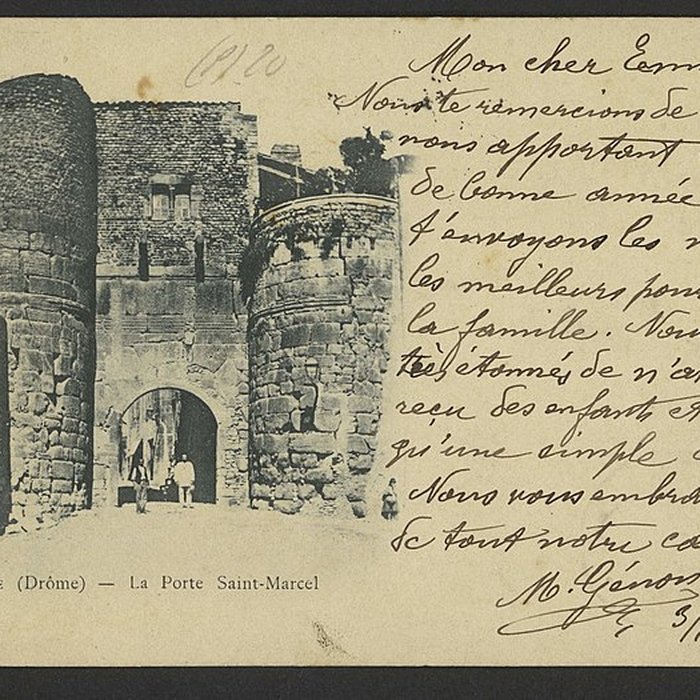 Mon cher
Nous te remercions de
nous apportant
de bonne année
t'envoyons les
les meilleurs pour
la famille. Nou
très étonnés de n'a
reçu des enfants
qu'une simple
Nous vous embra
de tout notre
M. Génon
(Drôme) — La Porte Saint-Marcel